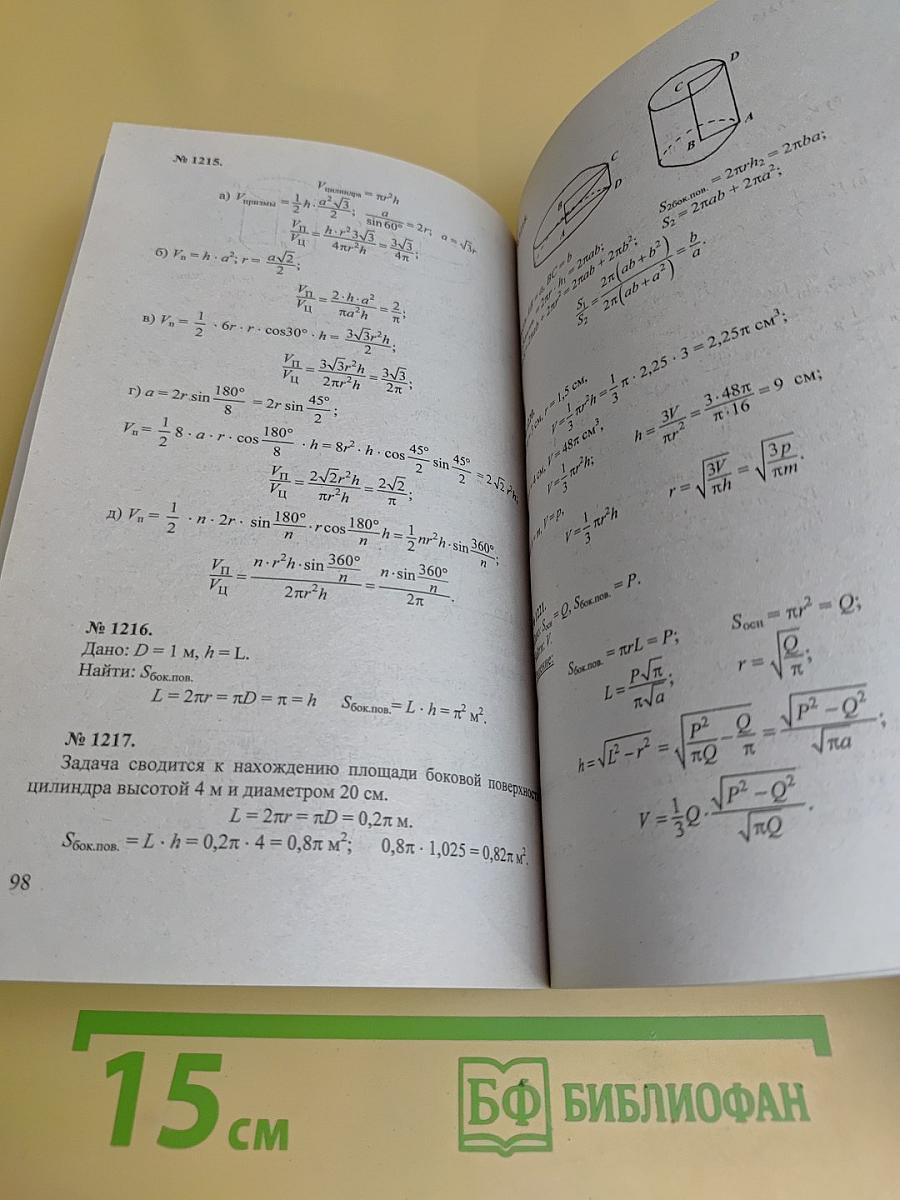 № 1215.
Vцилиндра = πr²h
а) Vпризмы = 1/2 h · a²√3/2; a/sin60° = 2r; a = √3r
Vп/Vц = h·r²3√3/4πr²h = 3√3/4π;
б) Vп = h · a²; r = a√2/2;
Vп/Vц = 2·h·a²/πa²h = 2/π;
в) Vп = 1/2 · 6r · r · cos30° · h = 3√3r²h/2;
Vп/Vц = 3√3r²h/2πr²h = 3√3/2π;
г) a = 2r sin 180°/8 = 2r sin 45°/2;
Vп = 1/2 8 · a · r · cos 180°/8 · h = 8r² · h · cos 45°/2 sin 45°/2 = 2√2r²h;
Vп/Vц = 2√2r²h/πr²h = 2√2/π;
д) Vп = 1/2 · n · 2r · sin 180°/n · r cos 180°/n h = 1/2 nr²h · sin 360°/n;
Vп/Vц = n·r²h·sin 360°/n / 2πr²h = n·sin 360°/n / 2π.
№ 1216.
Дано: D = 1 м, h = L.
Найти: Sбок.пов.
L = 2πr = πD = π = h Sбок.пов. = L · h = π² м².
№ 1217.
Задача сводится к нахождению площади боковой поверхности
цилиндра высотой 4 м и диаметром 20 см.
L = 2πr = πD = 0,2π м.
Sбок.пов. = L · h = 0,2π · 4 = 0,8π м²; 0,8π · 1,025 = 0,82π м².
98
C D
B A
C
D
B
A
BC = b
S2бок.пов. = 2πrh₂ = 2πba;
h₁ = 2πab;
S₂ = 2πab + 2πa²;
= 2πab + 2πb²;
S₁/S₂ = 2π(ab + b²)/2π(ab + a²) = b/a.
см, r = 1,5 см.
V = 1/3 πr²h = 1/3 π · 2,25 · 3 = 2,25π см³;
см, V = 48π см³,
V = 1/3 πr²h; h = 3V/πr² = 3·48π/π·16 = 9 см;
V = p,
V = 1/3 πr²h r = √3V/πh = √3p/πm.
1221.
Sосн = Q, Sбок.пов. = P.
V.
Sбок.пов. = πrL = P; Sосн = πr² = Q;
L = P√π/π√a; r = √Q/π;
h = √L² − r² = √P²/πQ − Q/π = √P² − Q²/√πa;
V = 1/3 Q · √P² − Q²/√πQ.
15 см
БФ БИБЛИОФАН